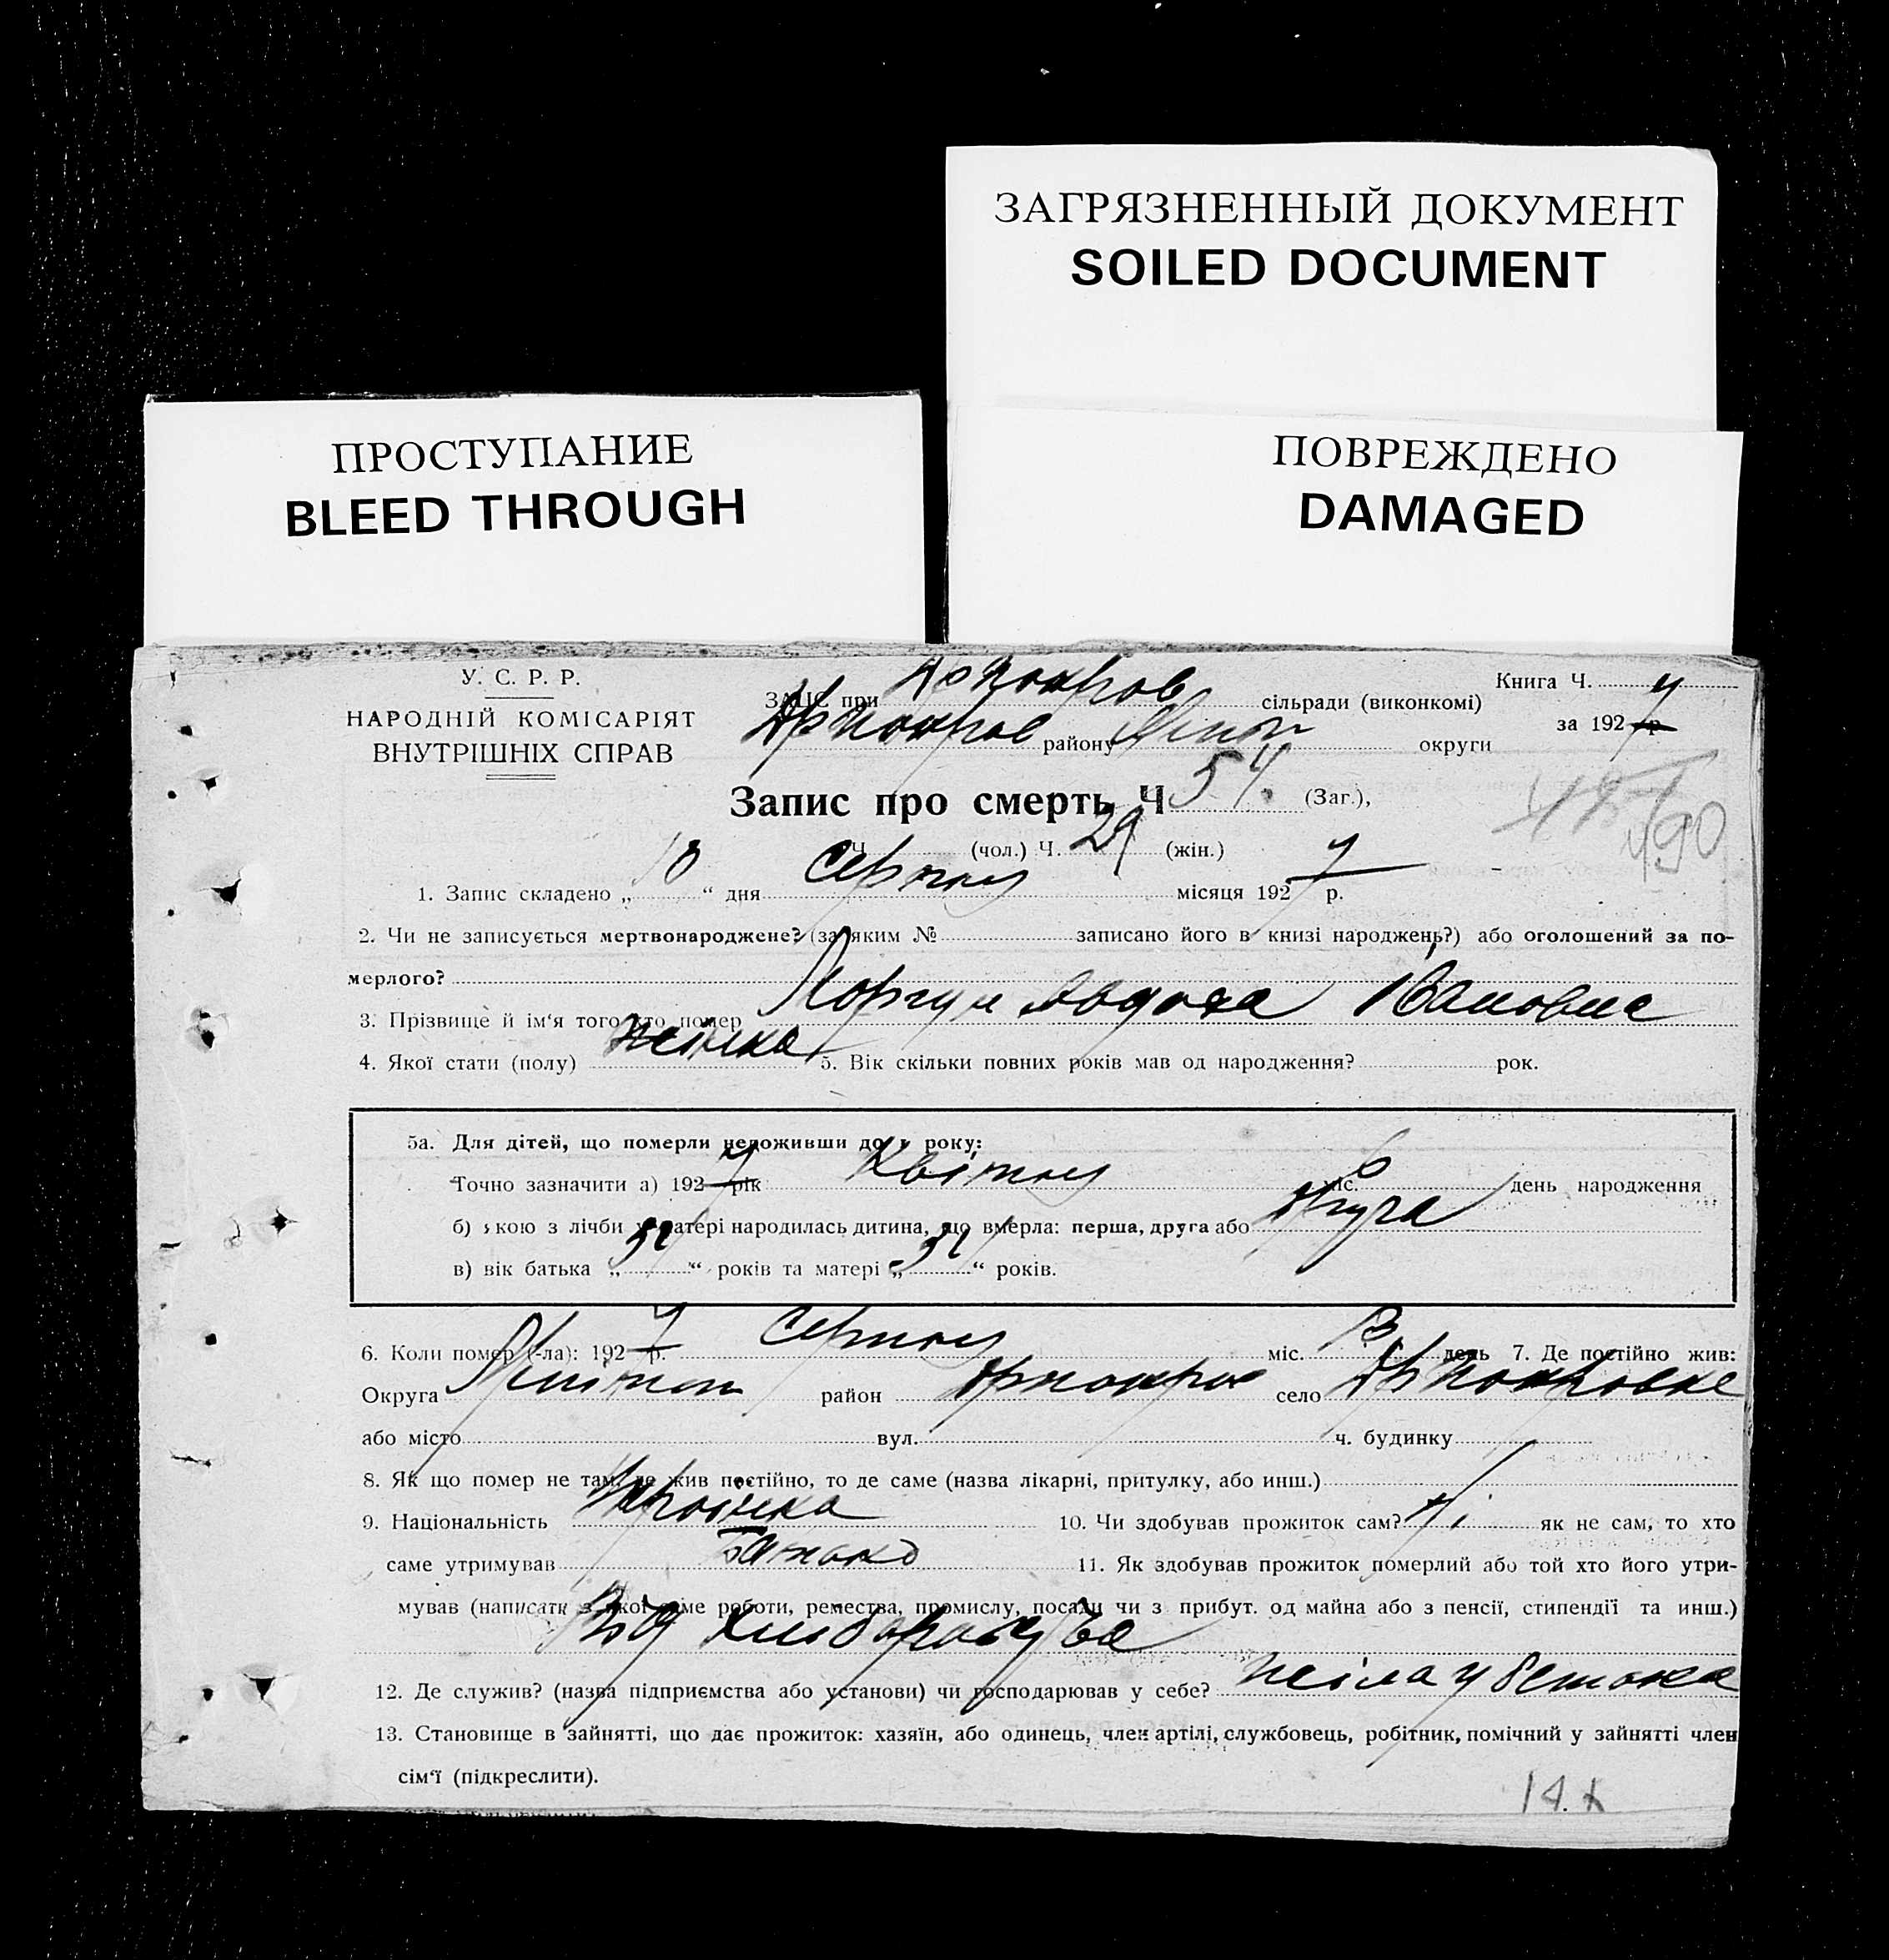 ЗАГРЯЗНЕННЫЙ ДОКУМЕНТ
SOILED DOCUMENT
ПРОСТУПАНИЕ
BLEED THROUGH
ПОВРЕЖДЕНО
DAMAGED
У. С. Р. Р.
НАРОДНІЙ КОМІСАРІЯТ
ВНУТРІШНІХ СПРАВ
ЗАЦС при сільради (виконкомі)
району округи
Книга Ч.
за 1927 р.
Запис про смерть Ч 54. (Заг.),
490
Ч. (чол.) Ч. 29 (жін.)
1. Запис складено „10“ дня Серпня місяця 1927 р.
2. Чи не записується мертвонароджене? (за яким № записано його в книзі народжень?) або оголошений за по-
мерлого?
3. Прізвище й ім'я того хто помер Івановна
4. Якої стати (полу) жінка 5. Вік скільки повних років мав од народження? рок.
5а. Для дітей, що померли недоживши до 1 року:
Точно зазначити а) 1927 рік Квітня міс. 6 день народження
б) якою з лічби у матері народилась дитина, що вмерла: перша, друга або друга
в) вік батька „ “ років та матері „ “ років.
6. Коли помер (-ла): 1927 р. Серпня міс. день 7. Де постійно жив:
Округа район село
або місто вул. ч. будинку
8. Як що помер не там, де жив постійно, то де саме (назва лікарні, притулку, або инш.)
9. Національність 10. Чи здобував прожиток сам? ні як не сам, то хто
саме утримував Батько 11. Як здобував прожиток померлий або той хто його утри-
мував (написати з якої саме роботи, ремества, промислу, посади чи з прибут. од майна або з пенсії, стипендії та инш.)
Від хліборобства
12. Де служив? (назва підприємства або установи) чи господарював у себе?
13. Становище в зайнятті, що дає прожиток: хазяїн, або одинець, член артілі, службовець, робітник, помічний у зайнятті член
сім'ї (підкреслити).